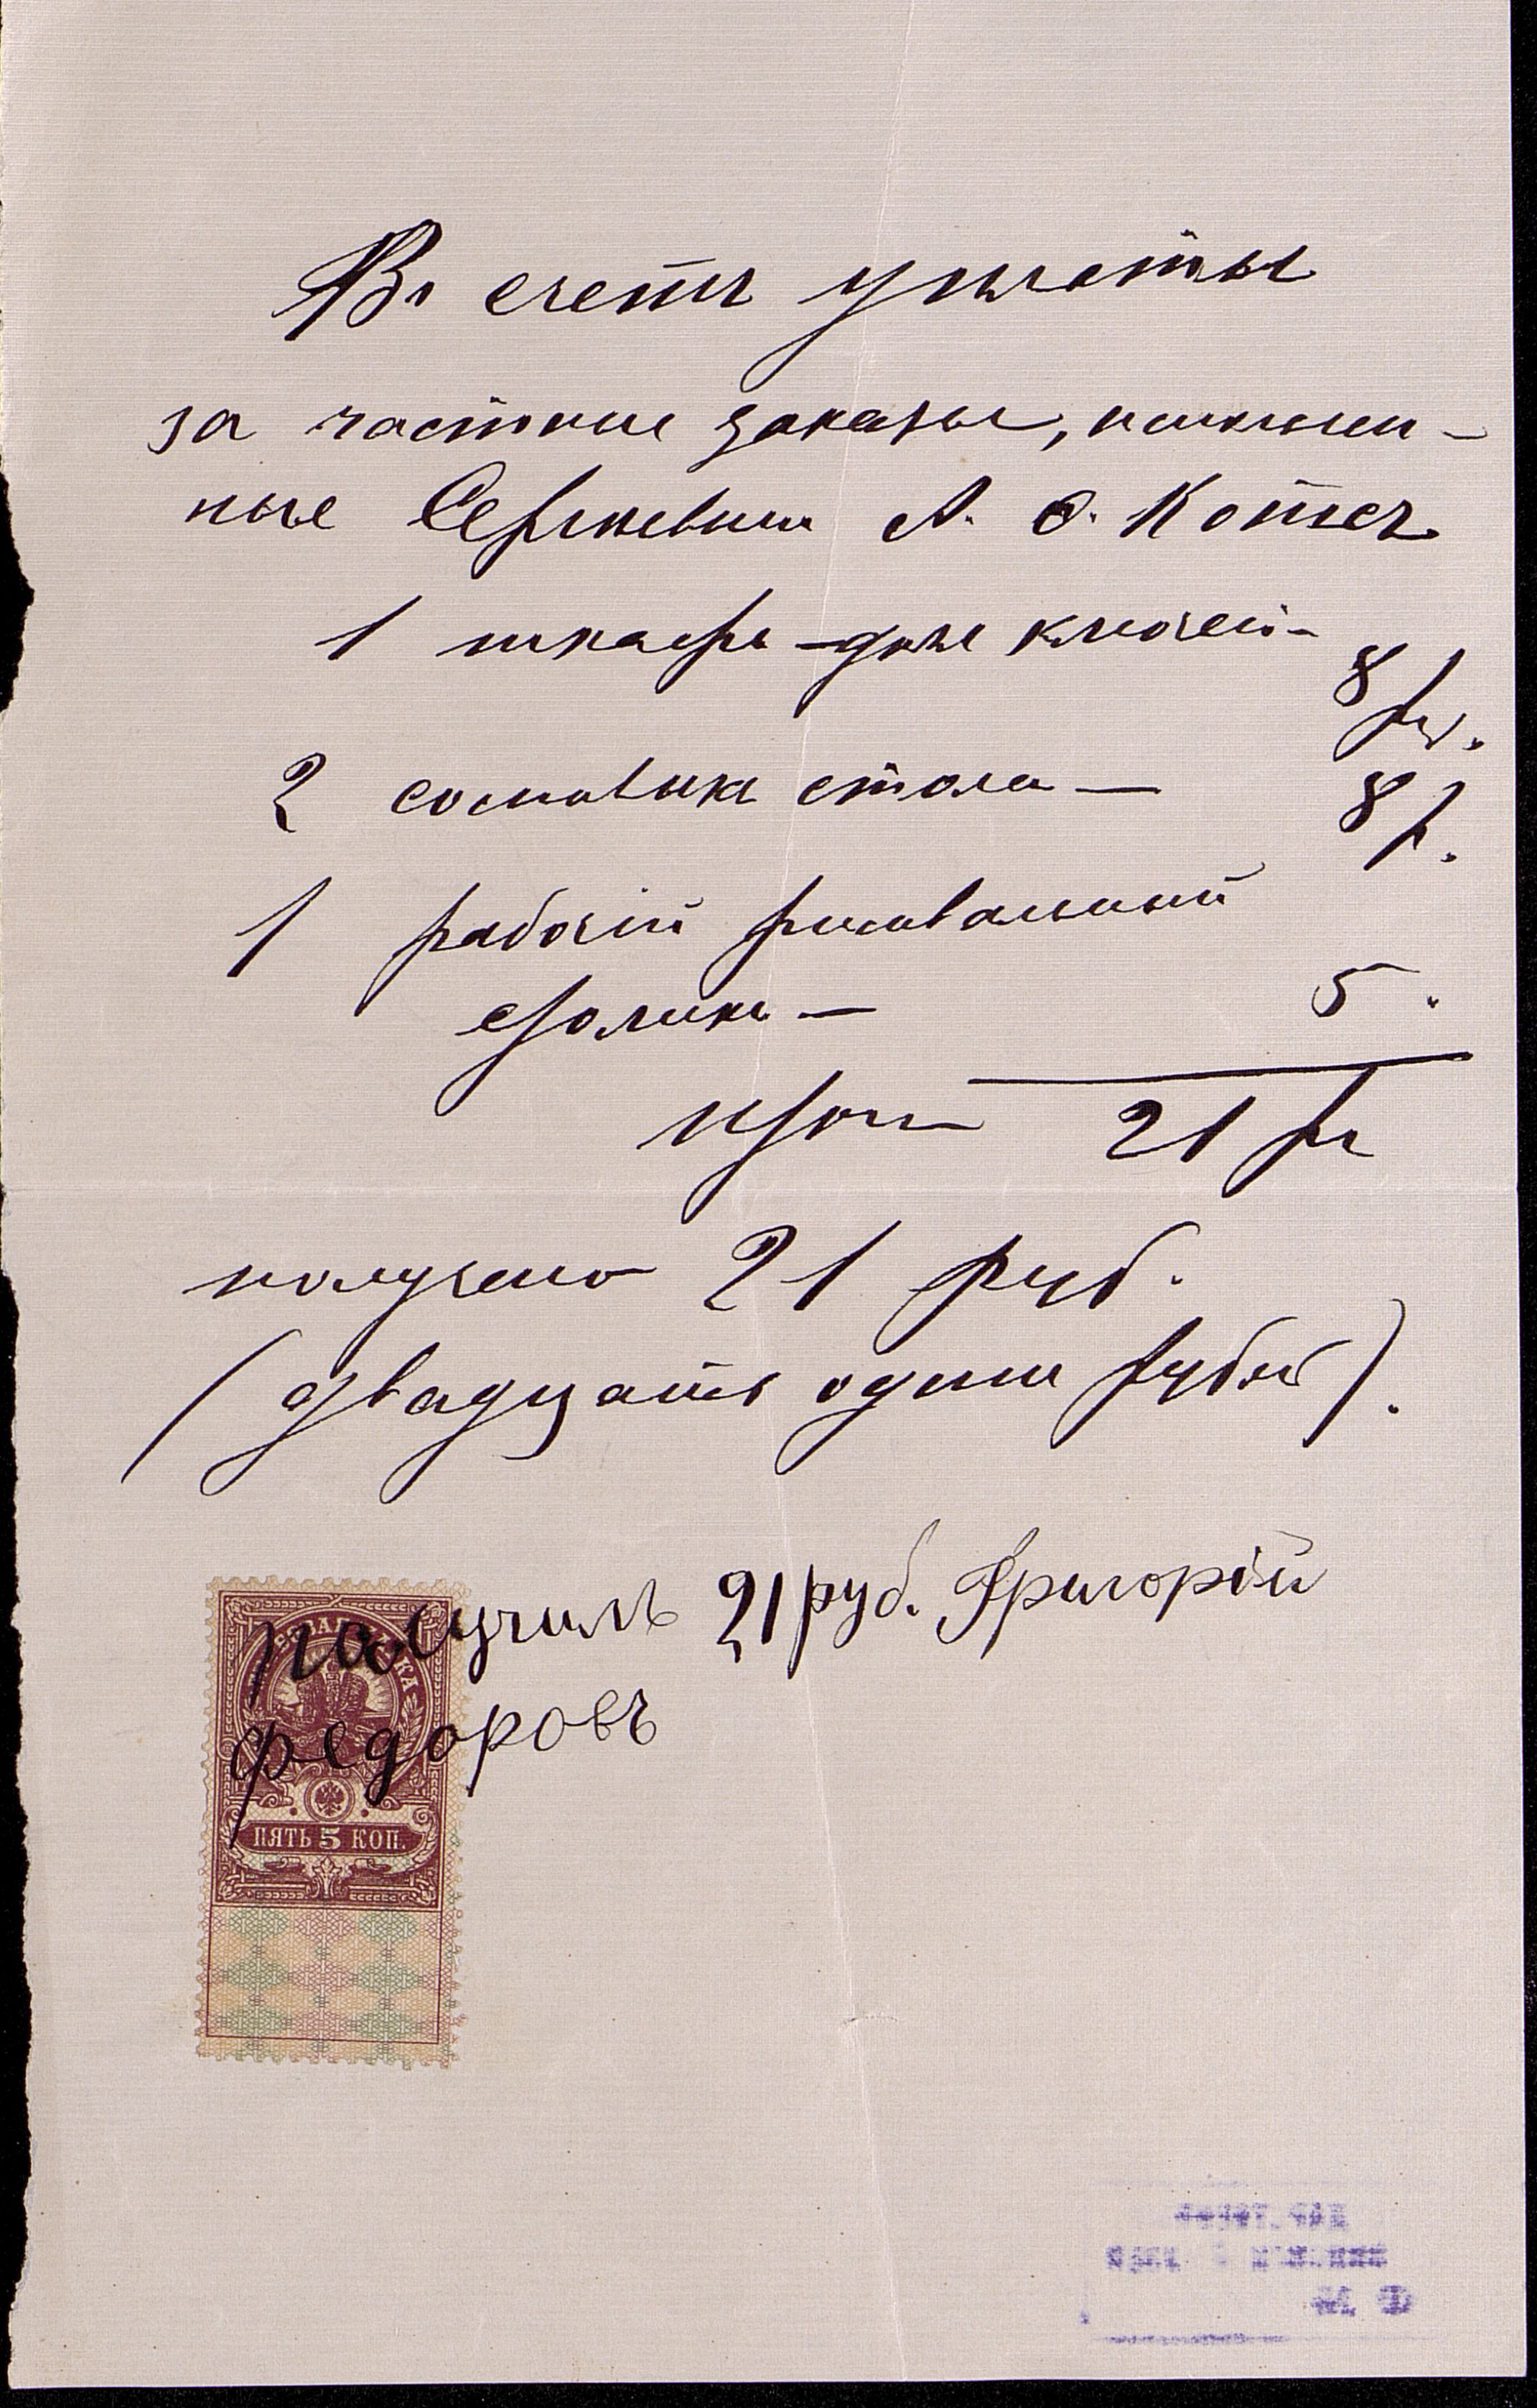 Въ счетъ уплаты
за частные заказы,
ные А. О. Котсъ
1 шкафъ - для ключей -
8 р.
2 сосновыхъ стола —
8 р.
1 рабочій рисовальный
столикъ —
5.
Итого 21 р
получено 21 руб.
(двадцать одинъ рубль).
получилъ 21 руб. Григорій
федоровъ
ПЯТЬ 5 КОП.